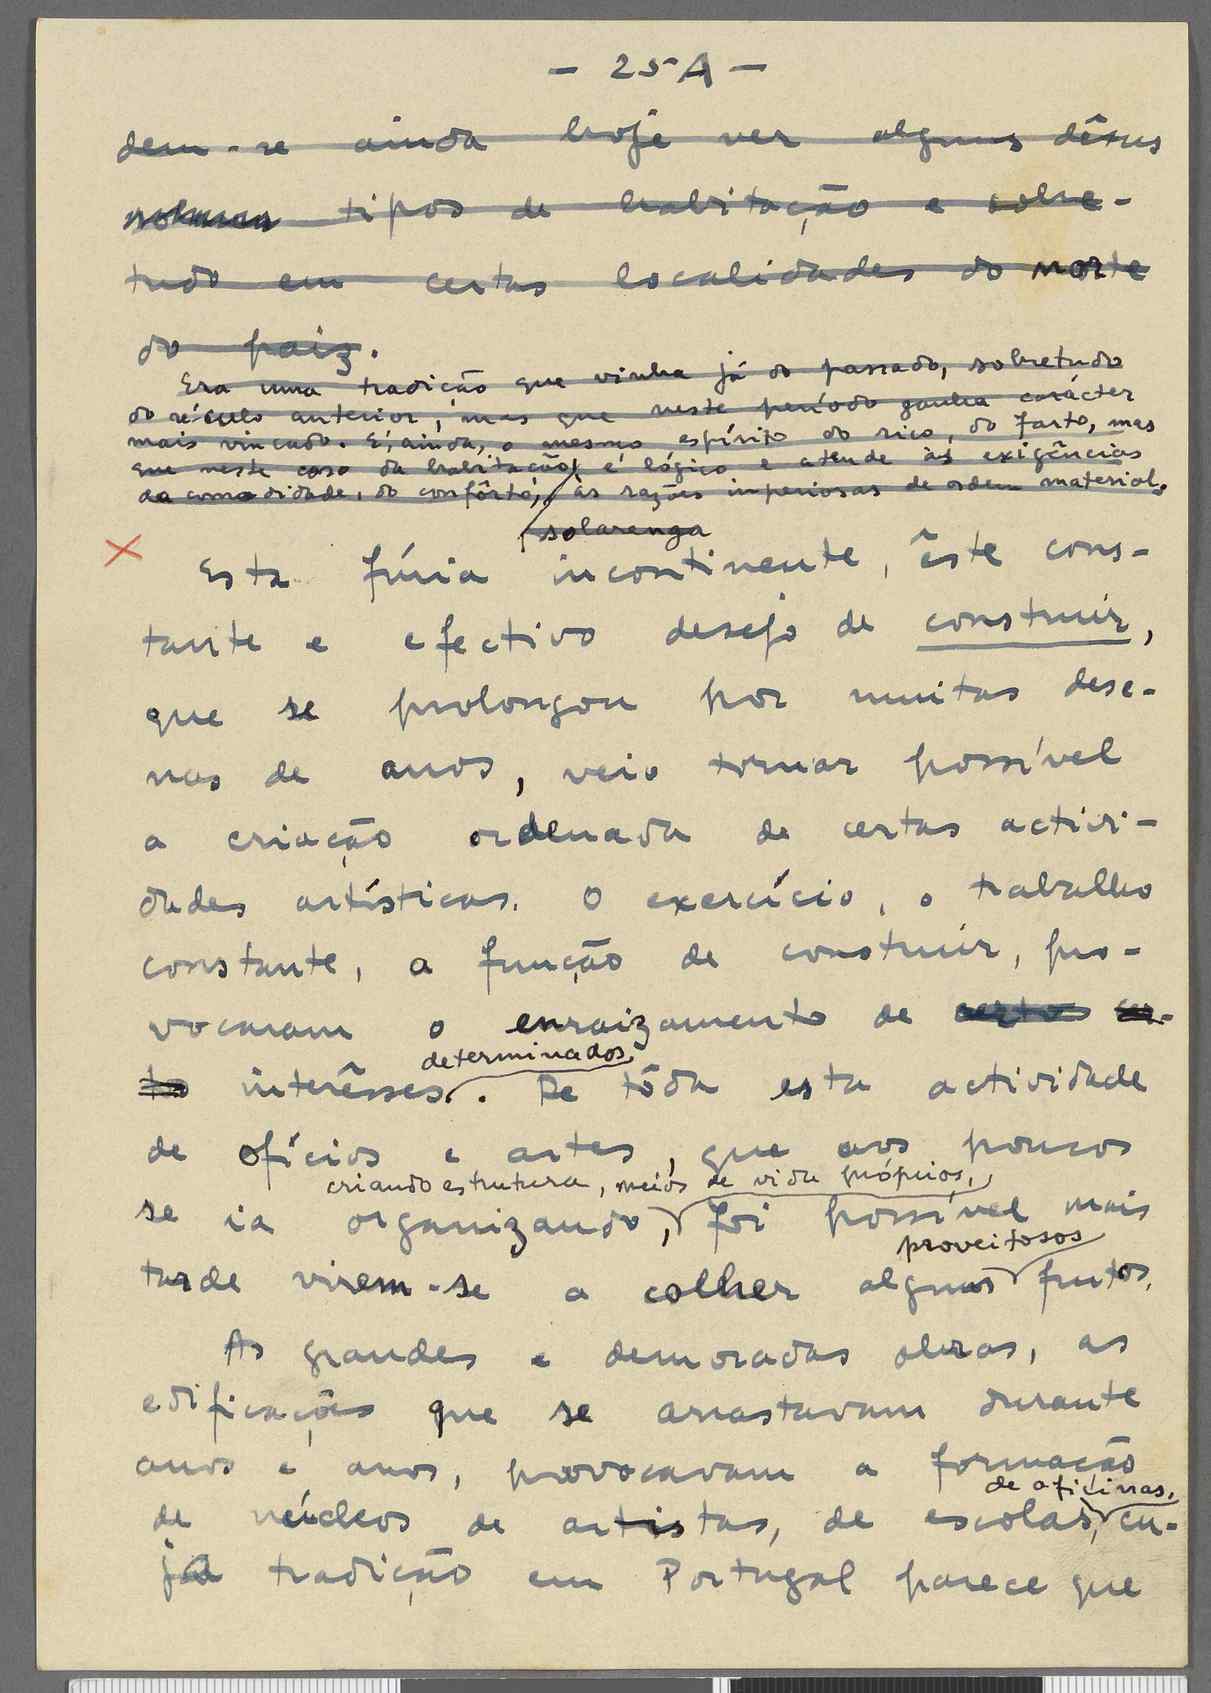 - 25A -
dem-se ainda hoje ver alguns dêsses
tipos de habitação e sobre-
tudo em certas localidades do norte
do paiz.
Era uma tradição que vinha já do passado, sobretudo
do século anterior, mas que neste período ganha carácter
mais vincado. E, ainda, o mesmo espírito do rico, do farto, mas
que neste caso da habitação é lógico e atende às exigências
da comodidade, do confôrto, às razões imperiosas de ordem material.
solarenga
Esta fúria incontinente, êste cons-
tante e efectivo desejo de construir,
que se prolongou por muitas dese-
nas de anos, veio tornar possível
a criação ordenada de certas activi-
dades artísticas. O exercício, o trabalho
constante, a função de construir, pro-
vocaram o enraizamento de certo cer-
to interêsses.
determinados
De tôda esta actividade
de ofícios e artes, que aos poucos
criando estrutura, meios de vida próprios,
se ia organizando, foi possível mais
proveitosos
tarde virem-se a colher alguns frutos.
As grandes e demoradas obras, as
edificações que se arrastavam durante
anos e anos, provocavam a formação
de oficinas,
de núcleos de artistas, de escolas, cu-
ja tradição em Portugal parece que